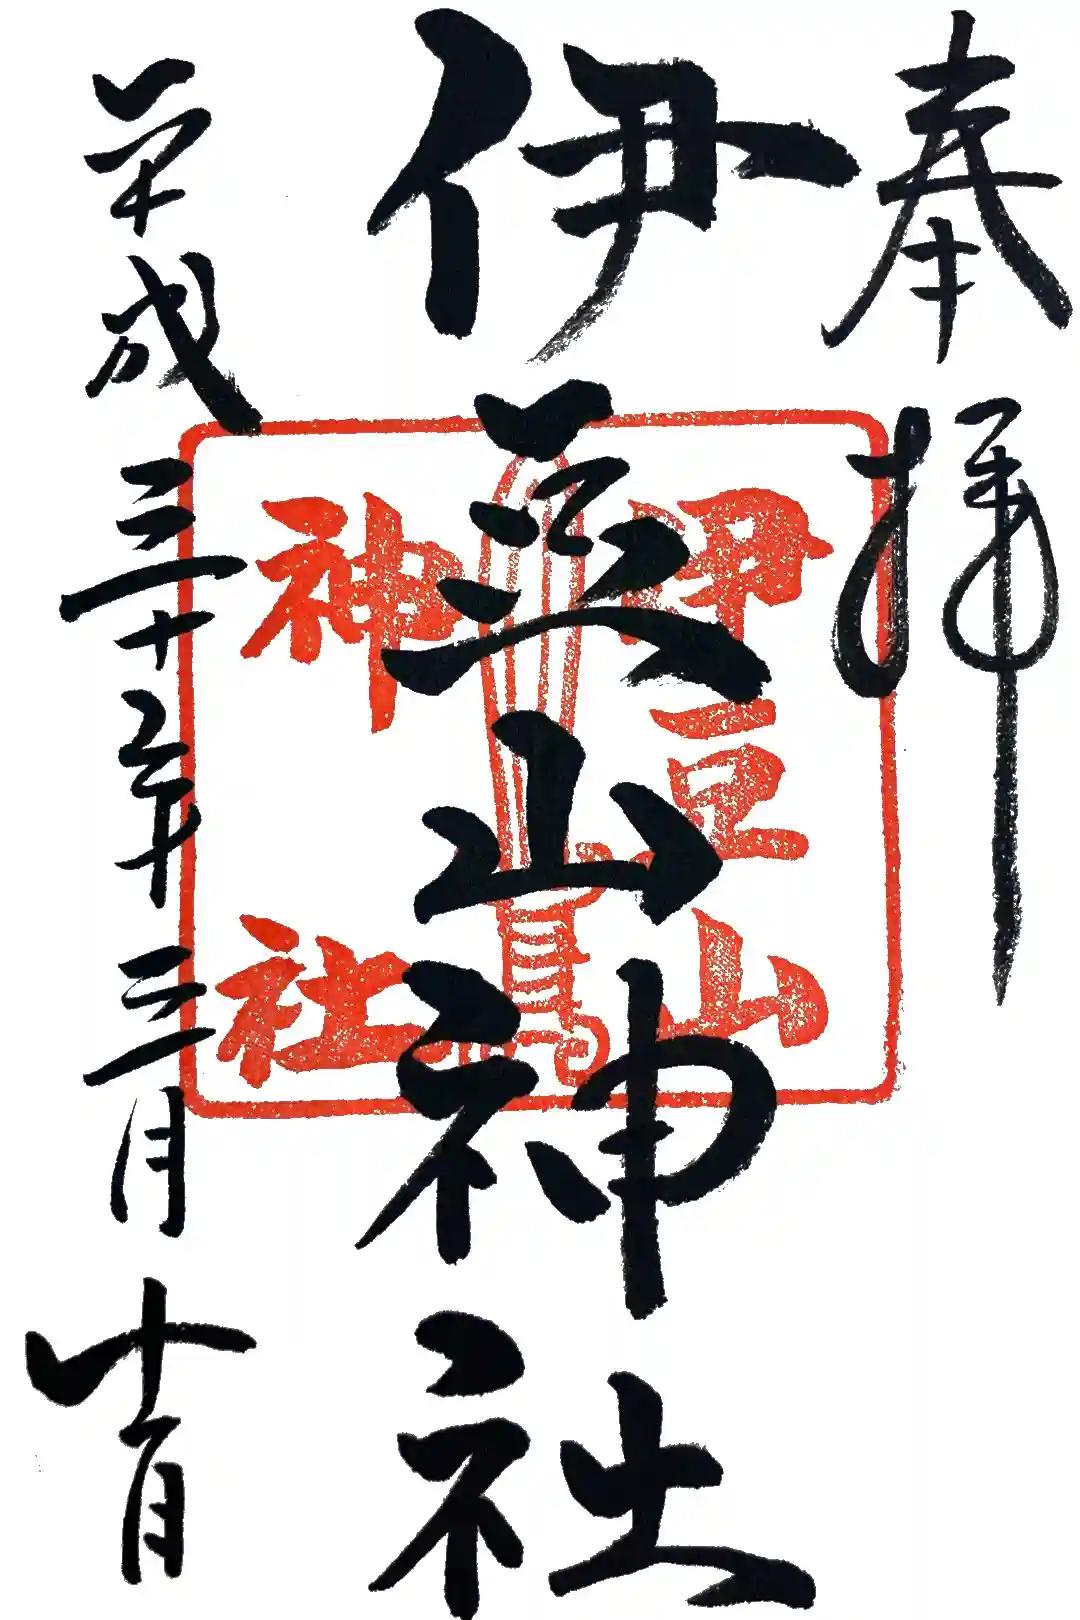 奉拝
伊豆山神社
伊豆山
神社
平成三十年三月十日